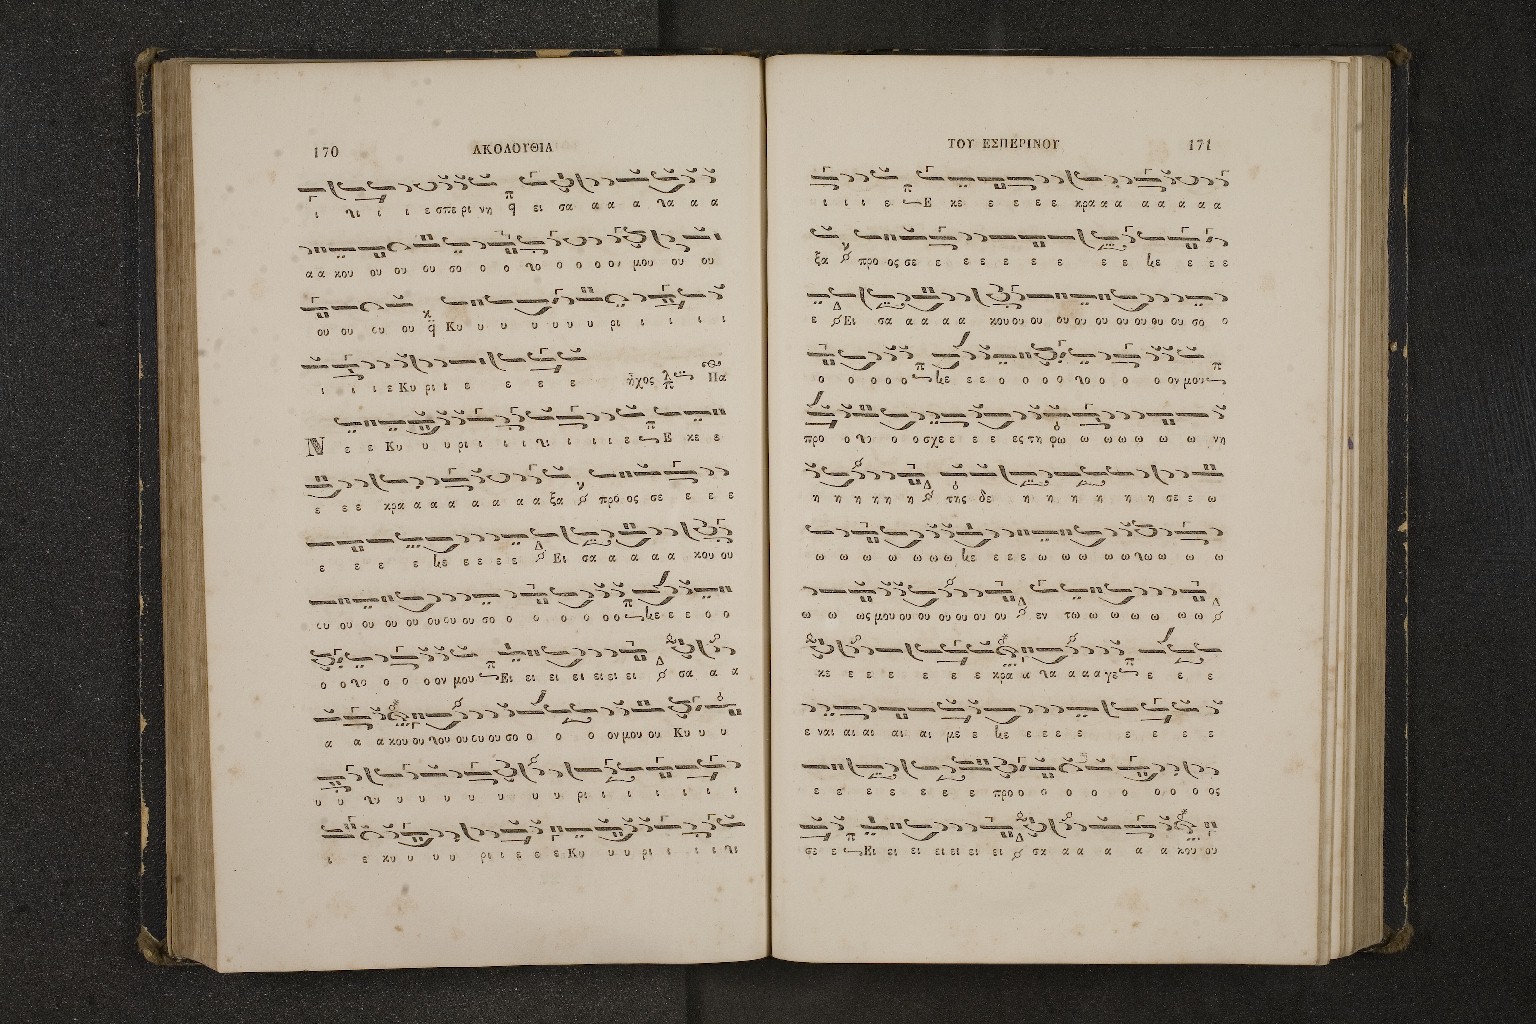 170
ΑΚΟΛΟΥΘΙΑ
ι τι ι ι ε σπε ρι νη ει σα α α α τα α α
α α κου ου ου ου σο ο ο το ο ο ο ον μου ου ου
ου ου ου ου Κυ υ υ υ υ υ υ ρι ι ι ι ι
ι ι ι ε Κυ ρι ε ε ε ε ε ἦχος Πα
Ν ε ε Κυ υ υ ρι ι ι ι τι ι ι ι ε Ε κε ε
ε ε ε κρα α α α α α α α ξα προ ος σε ε ε ε
ε ε ε ε κε ε ε ε ε Ει σα α α α α κου ου
ου ου ου ου ου ου ου ου σο ο ο ο ο ο ο κε ε ε ο ο
ο ο το ο ο ο ον μου Ει ει ει ει ει ει ει σα α α
α α α κου ου του ου ου ου σο ο ο ο ο ον μου ου Κυ υ υ
υ υ τυ υ υ υ υ υ υ υ ρι ι ι ι ι ι ι
ι ε κυ υ υ υ ρι ε ε ε ε Κυ υ υ ρι ι ι ι τι
ΤΟΥ ΕΣΠΕΡΙΝΟΥ
171
ι ι ι ε Ε κε ε ε ε ε κρα α α α α α α α
ξα προ ος σε ε ε ε ε ε ε ε ε κε ε ε ε
ε Ει σα α α α α κου ου ου ου ου ου ου ου ου ου σο ο
ο ο ο ο ο κε ε ε ο ο ο ο το ο ο ο ον μου
προ ο το ο ο σχε ε ε ε ες τη φω ω ω ω ω ω ω νη
η η η η η η της δε η η η η η η σε ε ω
ω ω ω ω ω ω ω κε ε ε ε ω ω ω ω ω τω ω ω ω
ω ω ως μου ου ου ου ου ου ου εν τω ω ω ω ω ω ω
κε ε ε ε ε ε ε κρα α τα α α α γε ε ε ε
ε ναι αι αι αι αι με ε κε ε ε ε ε ε ε ε ε
ε ε ε ε ε ε ε προ ο ο ο ο ο ο ο ο ος
σε ε Ει ει ει ει ει ει ει σα α α α α α κου ου